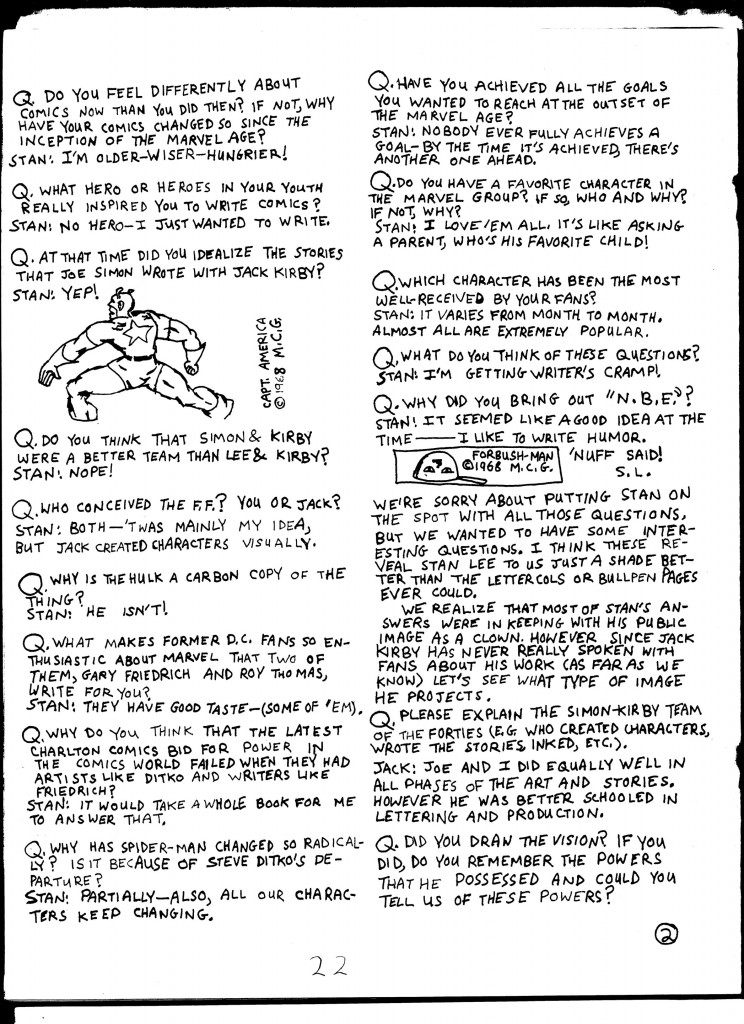 Q. DO YOU FEEL DIFFERENTLY ABOUT
COMICS NOW THAN YOU DID THEN? IF NOT, WHY
HAVE YOUR COMICS CHANGED SO SINCE THE
INCEPTION OF THE MARVEL AGE?
STAN: I'M OLDER-WISER-HUNGRIER!
Q. WHAT HERO OR HEROES IN YOUR YOUTH
REALLY INSPIRED YOU TO WRITE COMICS?
STAN: NO HERO-I JUST WANTED TO WRITE.
Q. AT THAT TIME DID YOU IDEALIZE THE STORIES
THAT JOE SIMON WROTE WITH JACK KIRBY?
STAN: YEP!
CAPT. AMERICA
©1968 M.C.G.
Q. DO YOU THINK THAT SIMON & KIRBY
WERE A BETTER TEAM THAN LEE & KIRBY?
STAN: NOPE!
Q. WHO CONCEIVED THE F.F.? YOU OR JACK?
STAN: BOTH-'TWAS MAINLY MY IDEA,
BUT JACK CREATED CHARACTERS VISUALLY.
Q. WHY IS THE HULK A CARBON COPY OF THE
THING?
STAN: HE ISN'T!
Q. WHAT MAKES FORMER D.C. FANS SO EN-
THUSIASTIC ABOUT MARVEL THAT TWO OF
THEM, GARY FRIEDRICH AND ROY THOMAS,
WRITE FOR YOU?
STAN: THEY HAVE GOOD TASTE-(SOME OF 'EM).
Q. WHY DO YOU THINK THAT THE LATEST
CHARLTON COMICS BID FOR POWER IN
THE COMICS WORLD FAILED WHEN THEY HAD
ARTISTS LIKE DITKO AND WRITERS LIKE
FRIEDRICH?
STAN: IT WOULD TAKE A WHOLE BOOK FOR ME
TO ANSWER THAT.
Q. WHY HAS SPIDER-MAN CHANGED SO RADICAL-
LY? IS IT BECAUSE OF STEVE DITKO'S DE-
PARTURE?
STAN: PARTIALLY-ALSO, ALL OUR CHARAC-
TERS KEEP CHANGING.
Q. HAVE YOU ACHIEVED ALL THE GOALS
YOU WANTED TO REACH AT THE OUTSET OF
THE MARVEL AGE?
STAN: NOBODY EVER FULLY ACHIEVES A
GOAL-BY THE TIME IT'S ACHIEVED, THERE'S
ANOTHER ONE AHEAD.
Q. DO YOU HAVE A FAVORITE CHARACTER IN
THE MARVEL GROUP? IF SO, WHO AND WHY?
IF NOT, WHY?
STAN: I LOVE 'EM ALL. IT'S LIKE ASKING
A PARENT, WHO'S HIS FAVORITE CHILD!
Q. WHICH CHARACTER HAS BEEN THE MOST
WELL-RECEIVED BY YOUR FANS?
STAN: IT VARIES FROM MONTH TO MONTH.
ALMOST ALL ARE EXTREMELY POPULAR.
Q. WHAT DO YOU THINK OF THESE QUESTIONS?
STAN: I'M GETTING WRITER'S CRAMP!
Q. WHY DID YOU BRING OUT "N.B.E."?
STAN: IT SEEMED LIKE A GOOD IDEA AT THE
TIME—I LIKE TO WRITE HUMOR.
FORBUSH-MAN
©1968 M.C.G.
'NUFF SAID!
S.L.
WE'RE SORRY ABOUT PUTTING STAN ON
THE SPOT WITH ALL THOSE QUESTIONS,
BUT WE WANTED TO HAVE SOME INTER-
ESTING QUESTIONS. I THINK THESE RE-
VEAL STAN LEE TO US JUST A SHADE BET-
TER THAN THE LETTERCOLS OR BULLPEN PAGES
EVER COULD.
WE REALIZE THAT MOST OF STAN'S AN-
SWERS WERE IN KEEPING WITH HIS PUBLIC
IMAGE AS A CLOWN. HOWEVER SINCE JACK
KIRBY HAS NEVER REALLY SPOKEN WITH
FANS ABOUT HIS WORK (AS FAR AS WE
KNOW) LET'S SEE WHAT TYPE OF IMAGE
HE PROJECTS.
Q. PLEASE EXPLAIN THE SIMON-KIRBY TEAM
OF THE FORTIES (E.G. WHO CREATED CHARACTERS,
WROTE THE STORIES, INKED, ETC.).
JACK: JOE AND I DID EQUALLY WELL IN
ALL PHASES OF THE ART AND STORIES.
HOWEVER HE WAS BETTER SCHOOLED IN
LETTERING AND PRODUCTION.
Q. DID YOU DRAW THE VISION? IF YOU
DID, DO YOU REMEMBER THE POWERS
THAT HE POSSESSED AND COULD YOU
TELL US OF THESE POWERS?
2
22